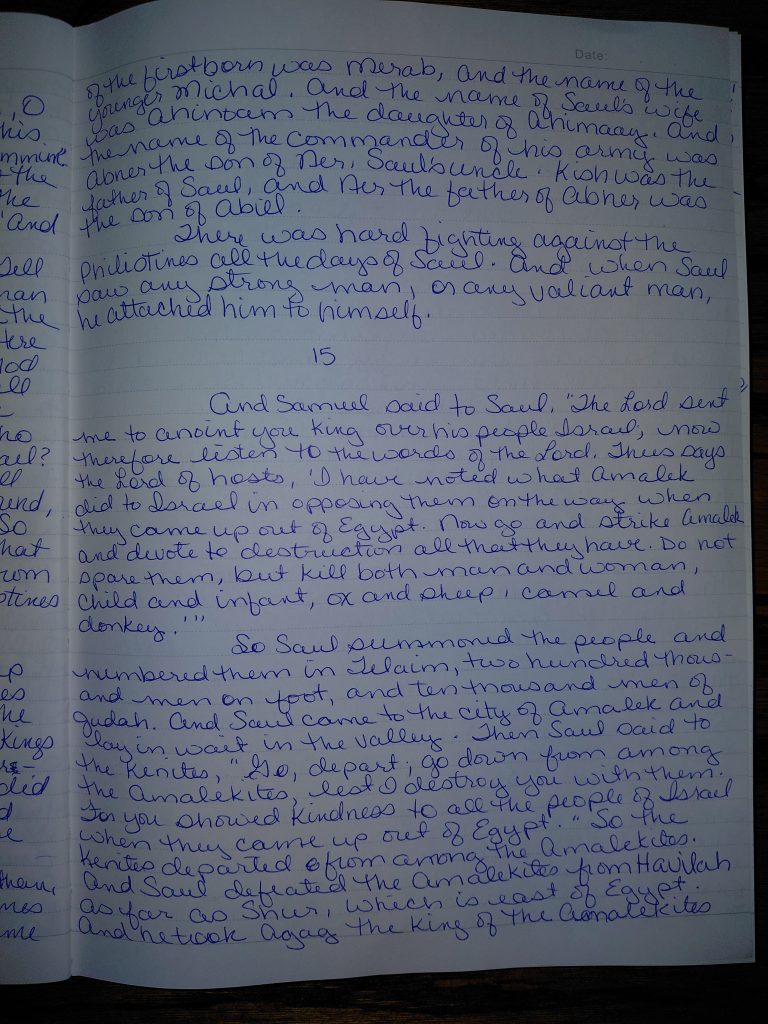 Date:
of the firstborn was Merab, and the name of the
younger Michal. And the name of Saul's wife
was Ahinoam the daughter of Ahimaaz. And
the name of the commander of his army was
Abner the son of Ner, Saul's uncle. Kish was the
father of Saul, and Ner the father of Abner was
the son of Abiel.
There was hard fighting against the
Philistines all the days of Saul. And when Saul
saw any strong man, or any valiant man,
he attached him to himself.
15
And Samuel said to Saul, "The Lord sent
me to anoint you King over his people Israel; now
therefore listen to the words of the Lord. Thus says
the Lord of hosts, 'I have noted what Amalek
did to Israel in opposing them on the way when
they came up out of Egypt. Now go and strike Amalek
and devote to destruction all that they have. Do not
spare them, but kill both man and woman,
child and infant, ox and sheep, camel and
donkey.'"
So Saul summoned the people and
numbered them in Telaim, two hundred thous-
and men on foot, and ten thousand men of
Judah. And Saul came to the city of Amalek and
lay in wait in the valley. Then Saul said to
the Kenites, "Go, depart; go down from among
the Amalekites, lest I destroy you with them.
For you showed kindness to all the people of Israel
when they came up out of Egypt." So the
Kenites departed from among the Amalekites.
And Saul defeated the Amalekites from Havilah
as far as Shur, which is east of Egypt.
And he took Agag the king of the Amalekites